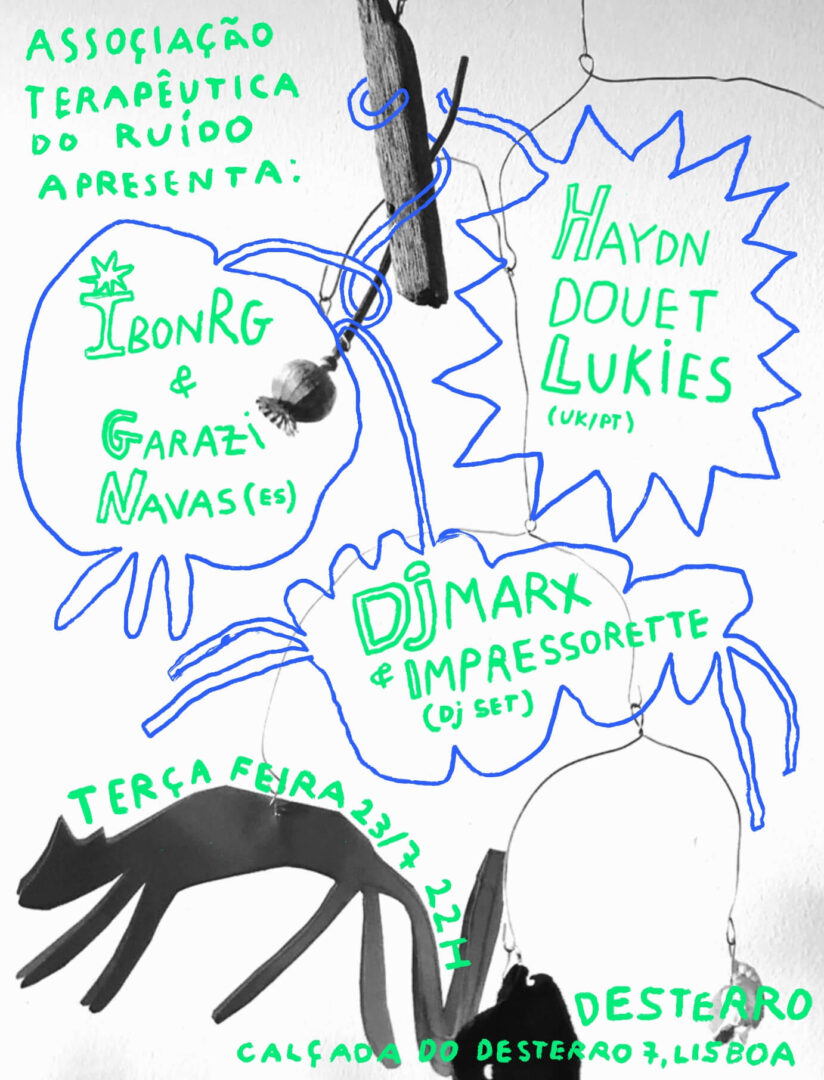 ASSOCIAÇÃO
TERAPÊUTICA
DO RUÍDO
APRESENTA:
IBONRG
&
GARAZI
NAVAS (ES)
HAYDN
DOUET
LUKIES
(UK/PT)
DJ MARX
& IMPRESSORETTE
(DJ SET)
TERÇA FEIRA 23/7 22H
DESTERRO
CALÇADA DO DESTERRO 7, LISBOA